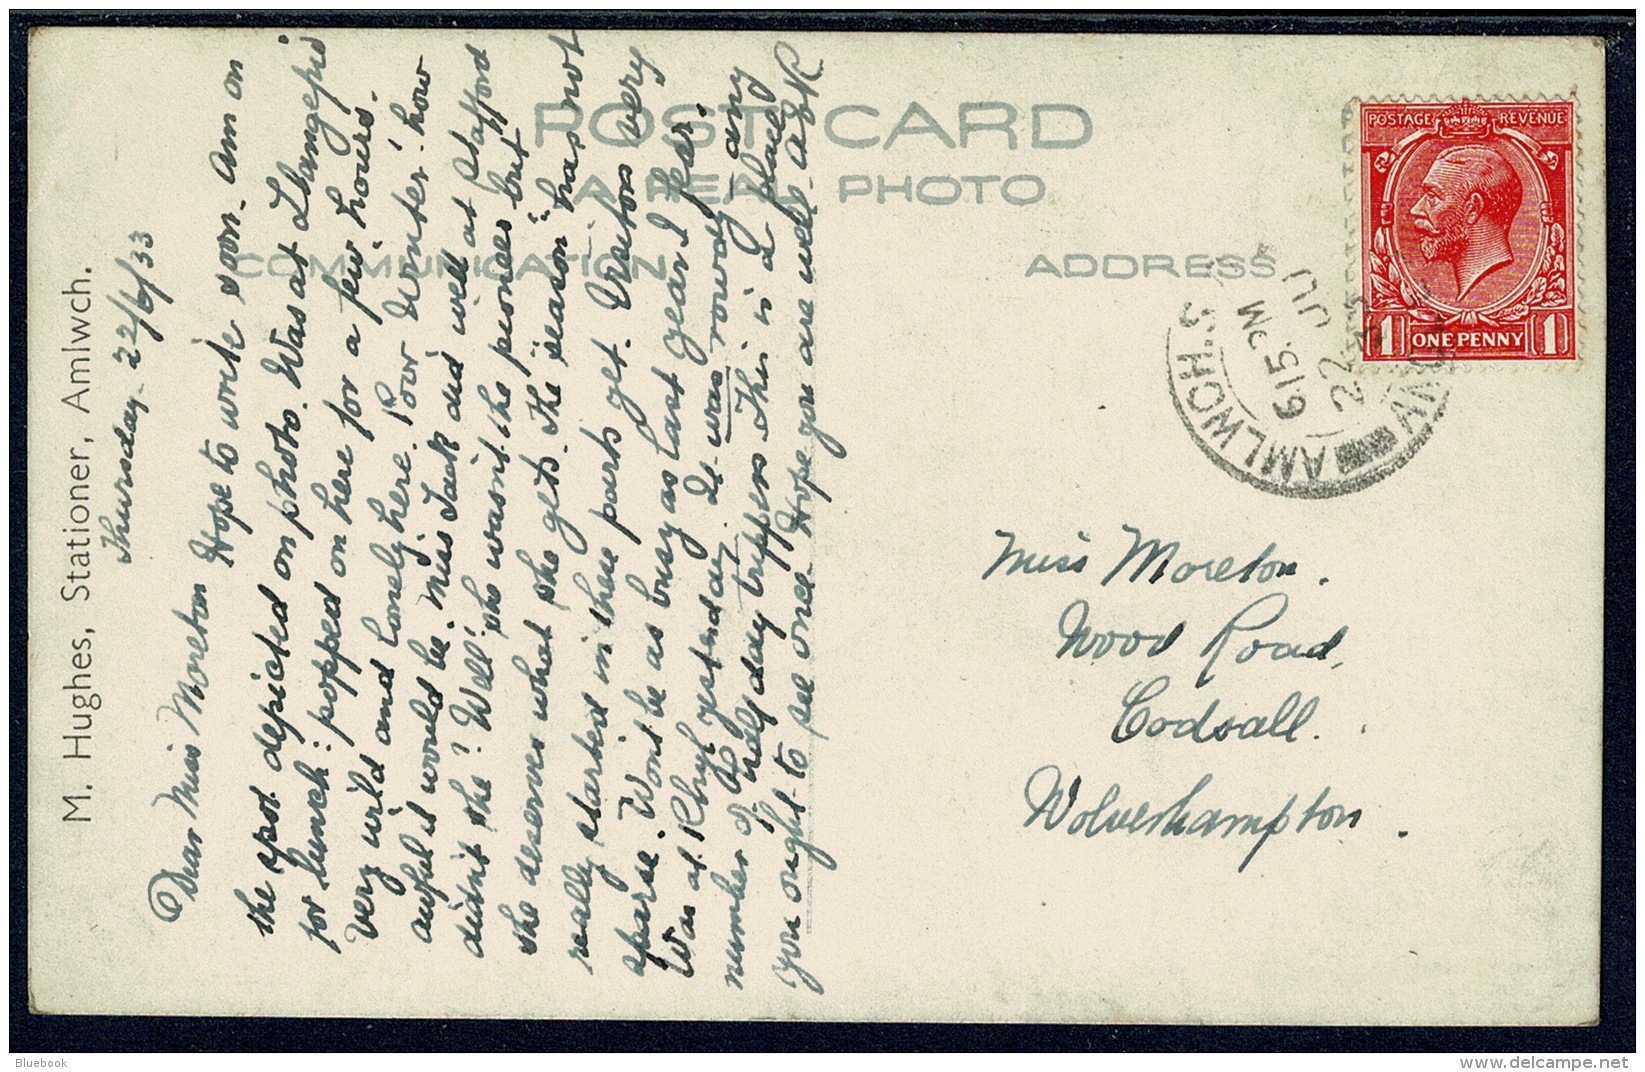 M. Hughes, Stationer, Amlwch.
POST CARD
A REAL PHOTO
COMMUNICATION
ADDRESS
POSTAGE REVENUE
1 ONE PENNY 1
AMLWCH S.O
6 15 PM
22 JU
33
ANGLESEY
Thursday 22/6/33
Dear Miss Moreton Hope to write soon. Am on
the spot depicted on photo. Was at Llangefni
for lunch: popped on here for a few hours.
Very wild and lonely here. Poor Verniter! how
awful it would be. Miss Jack did well at Stafford
didn't she? Well! she wasn't the pioneer but
she deserves what she gets. The "season" has not
really started in these parts yet. Visitors very
sparse. Won't be as busy as last year I fear.
Was at Rhyl yesterday. It was rowdy any
number of half day trippers. This is a place
you ought to see once. Hope you are well.
Miss Moreton.
Wood Road,
Codsall.
Wolverhampton.
Bluebook
www.delcampe.net